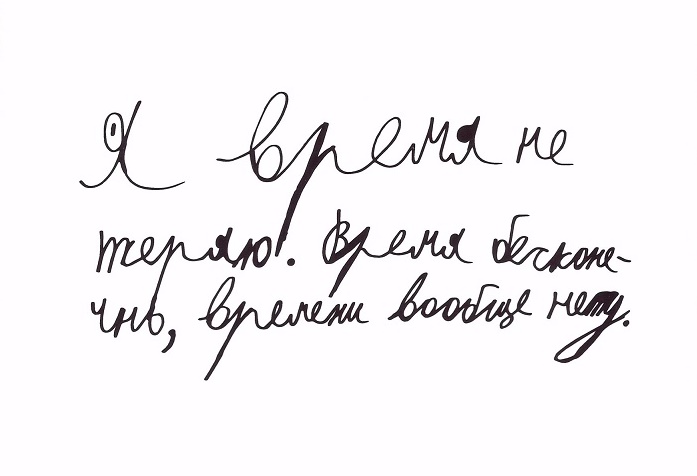 Я время не
теряю. Время бесконе-
чнь, времени вообще нету.